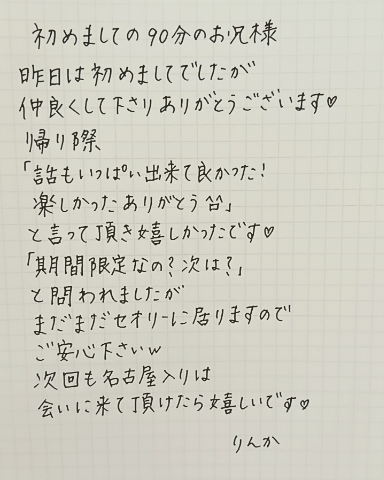 初めましての90分のお兄様
昨日は初めましてでしたが
仲良くして下さりありがとうございます♡
帰り際
「話もいっぱい出来て良かった！
楽しかったありがとう^^」
と言って頂き嬉しかったです♡
「期間限定なの？次は？」
と問われましたが
まだまだセオリーに居りますので
ご安心下さいw
次回も名古屋入りは
会いに来て頂けたら嬉しいです♡
りんか